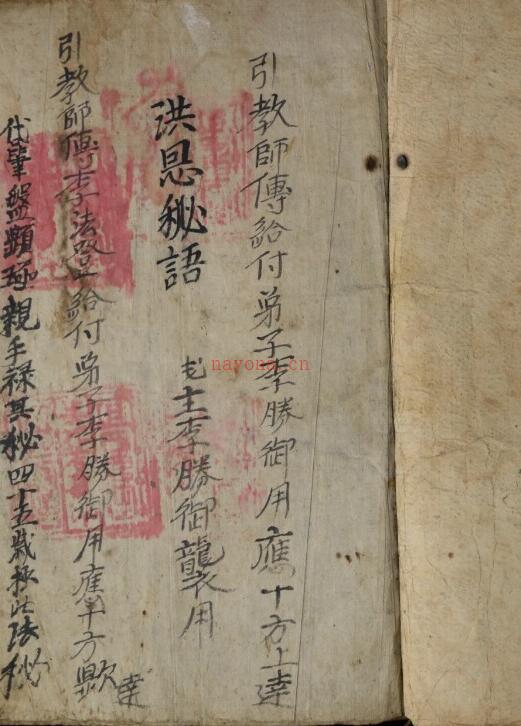 引教師傳給付弟子李勝御用應十方上達
洪恩秘語
主李勝御襲用
引教師傳李法登給付弟子李勝御用應十方
達
代筆盤顯 親手禄其秘四十五歲 此法秘
nayona.cn